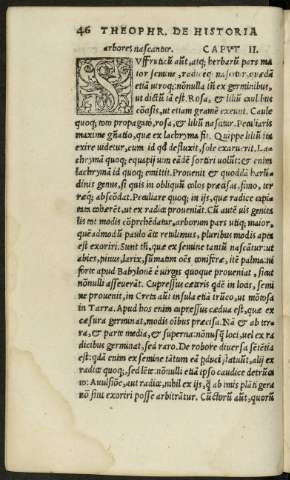 46 THEOPHR. DE HISTORIA
arbores nascantur. CAPVT II.
Suffruticũ aũt, atq; herbarũ pars ma
ior semine, radiceq; nascitur, quædã
etiã utroq;: nonnulla iñ ex germinibus,
ut dictũ iã est. Rosa, & liliũ cauli bus
cõcisis, ut etiam gramẽ exeunt. Caule
quoq; tum propagari, rosa, & liliũ nascitur. Peculiaris
maxime gñatio, quæ ex lachryma fit. Quippe liliũ sic
exire uidetur, cum id qd defluxit, sole exaruerit. La
achrymã quoq; equapij uim eãdẽ sortiri uolũt: & enim
lachrymã id quoq; emittit. Prouenit & quoddã harũ
dinis genus, si quis in obliquũ colos præcisas, fimo, ter
ráq; abscõdat. Peculiare quoq; in ijs, quæ radice capita
tim cohærẽt, ut ex radice proueniãt. Cũ autẽ uis genita
lis tot modis cõprehẽdatur, arborum pars utiq; maior,
quẽadmodũ paulo ãte retulimus, pluribus modis apta
est exoriri. Sunt tñ, quæ ex semine tantũ nascãtur: ut
abies, pinus, larix, sũmatim oẽs coniferæ, itẽ palma: ni
forte apud Babylonẽ è uirgis quoque proueniat, sicut
nõnulli asseuerãt. Cupressus cæteris qdẽ in locis, semi
ne prouenit, in Creta aũt insula etiã trũco, ut mõtosa
in Tarra. Apud hos enim cupressus cædua est, quæ ex
cæsura germinat, modis oĩbus præcisa. Nã & ab ter
ra, & parte media, & superna: nõnusq̃ loci, uel ex ra
dicibus germinat, sed raro. De robore diuersa sẽtẽtia
est: qdã enim ex semine tãtum eã pduci statuũt, alij ex
radice quoq;, sed lẽte: nõnulli etiã ipso caudice detrũca
to. Auulsiõe, aut radice, nihil ex ijs, q̃ ab imis plãti gera
nõ sint exoriri posse arbitrãtur. Cũctorũ aũt, quorũ